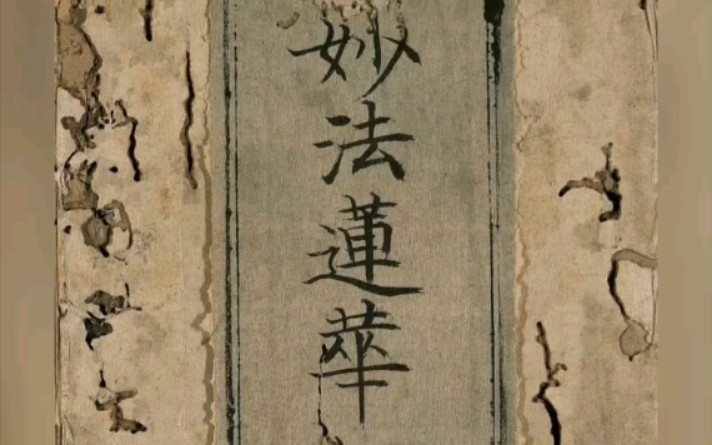 妙法蓮華